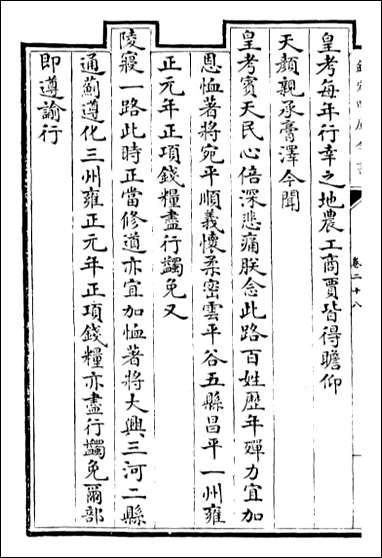 欽定四庫全書
卷二十八
皇考每年行幸之地農工商賈皆得瞻仰
天顔親承膏澤今聞
皇考賓天民心倍深悲痛朕念此路百姓歴年殫力宜加
恩恤著將宛平順義懷柔密雲平谷五縣昌平一州雍
正元年正項錢糧盡行蠲免又
陵寢一路此時正當修道亦宜加恤著將大興三河二縣
通薊遵化三州雍正元年正項錢糧亦盡行蠲免爾部
即遵諭行